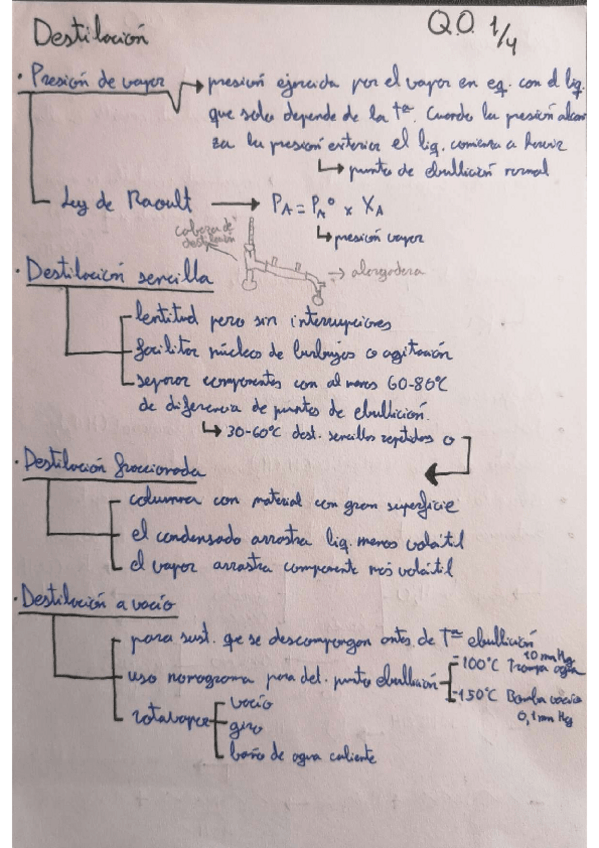 Destilación
Q.O. 1/4
· Presión de vapor → presión ejercida por el vapor en eq. con el liq.
que solo depende de la tª. Cuando la presión alcan
za la presión exterior el liq. comienza a hervir
↳ punto de ebullición normal
Ley de Raoult → PA = PA° x XA
↳ presión vapor
cabeza de
destilación
→ alargadera
· Destilación sencilla
lentitud pero sin interrupciones
facilitar núcleos de burbujas o agitación
separar componentes con al menos 60-80°C
de diferencia de puntos de ebullición.
↳ 30-60°C dest. sencillas repetidas o
· Destilación fraccionada
columna con material con gran superficie
el condensado arrastra liq. menos volátil
el vapor arrastra componente más volátil
· Destilación a vacío
para sust. que se descompongan antes de Tª ebullición
uso nomograma para det. punto ebullición
10 mm Hg
-100°C Trompa agua
-150°C Bomba vacío
0,1 mm Hg
rotavapor
vacío
giro
baño de agua caliente